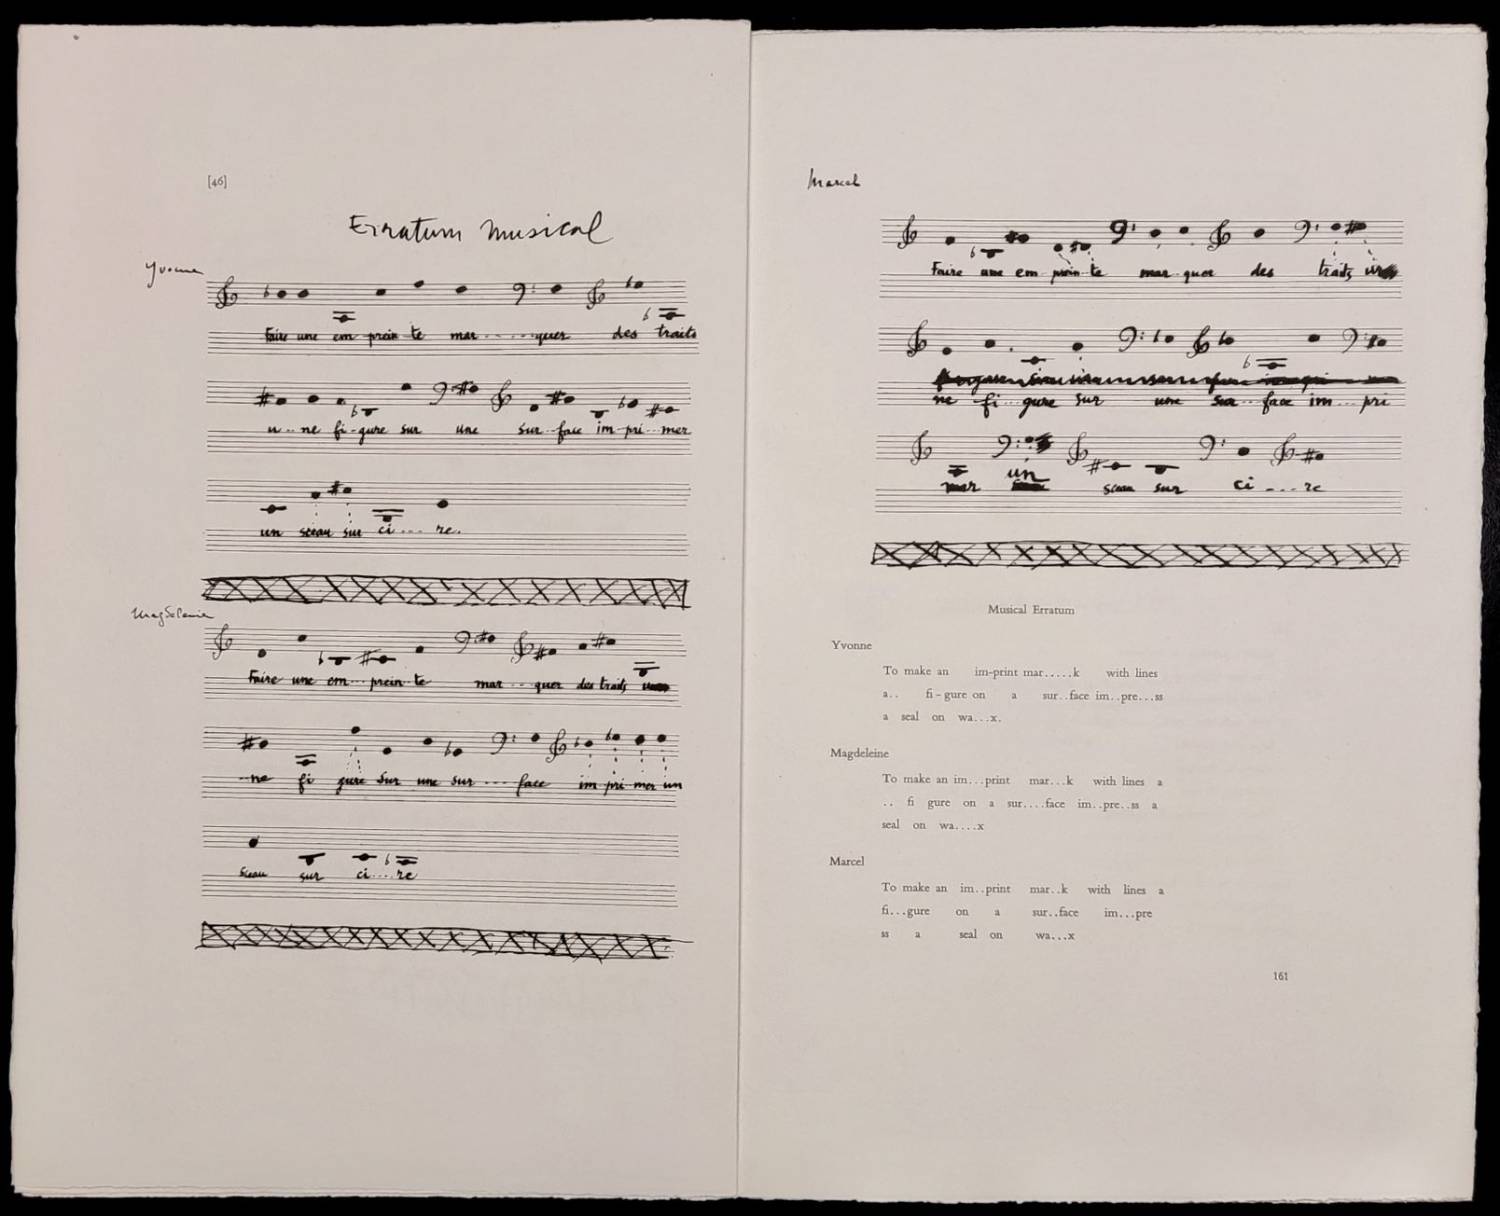 [46]
Erratum Musical
Yvonne
Faire une em prein te mar - . . . quer des traits
u .. ne fi - gure sur une sur .. face im - pri .. mer
un sceau sur ci .... re.
Magdeleine
Faire une em ... prein .. te mar .. quer des traits
- ne fi gure sur une sur .... face im pri mer un
sceau sur ci .... re
Marcel
Faire une em prein te mar - quer des traits
ne fi . gure sur une sur .. face im ... pri
mer un sceau sur ci .... re
Musical Erratum
Yvonne
To make an im-print mar.....k with lines
a.. fi-gure on a sur..face im..pre...ss
a seal on wa...x.
Magdeleine
To make an im...print mar...k with lines a
.. fi gure on a sur....face im..pre..ss a
seal on wa....x
Marcel
To make an im..print mar..k with lines a
fi...gure on a sur..face im...pre
ss a seal on wa...x
161